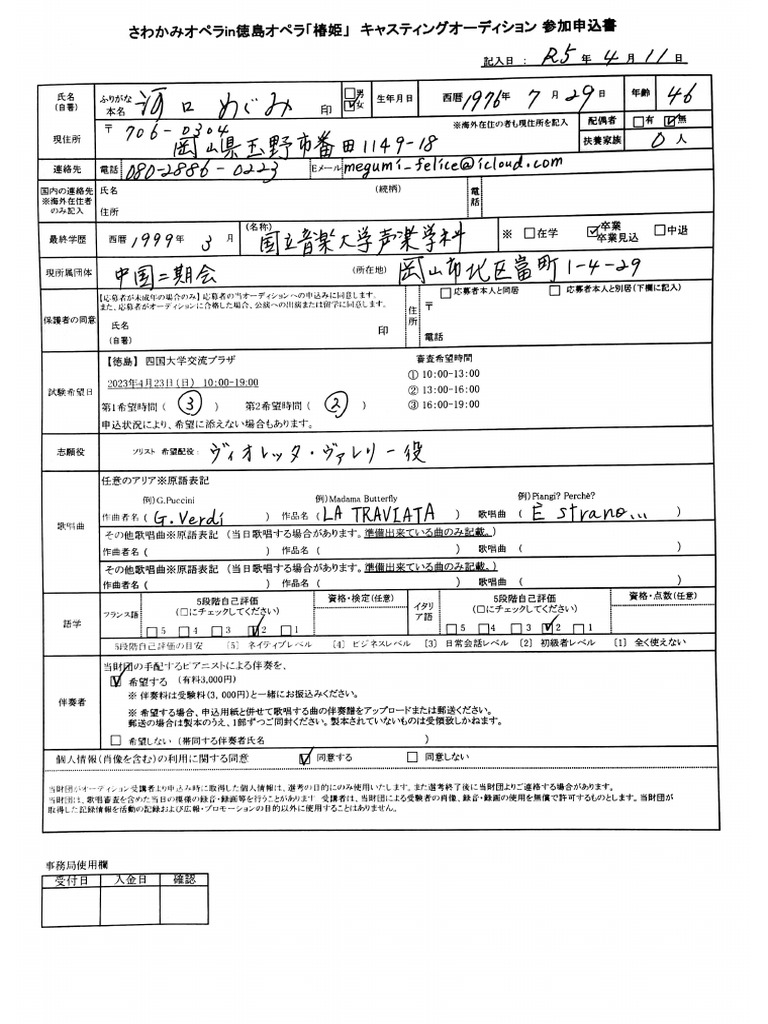 さわかみオペラin徳島オペラ「椿姫」 キャスティングオーディション 参加申込書
記入日 : R5 年 4 月 11 日
氏名 (自署) ふりがな 本名 河口 めぐみ 印 □男 ☑女 生年月日 西暦 1976年 7 月 29 日 年齢 46
現住所 〒706-0304 ※海外在住の者も現住所を記入 配偶者 □有 ☑無
岡山県玉野市番田1149-18 扶養家族 0 人
連絡先 電話 080-2886-0223 Eメール megumi_felice@icloud.com
国内の連絡先 ※海外在住者のみ記入 氏名 (続柄) 電話
住所
最終学歴 西暦 1999年 3 月 (名称) 国立音楽大学声楽学科 ※ □在学 ☑卒業 卒業見込 □中退
現所属団体 中国二期会 (所在地) 岡山市北区富町1-4-29
保護者の同意 【応募者が未成年の場合のみ】応募者の当オーディションへの申込みに同意します。 住所 □応募者本人と同居 □応募者本人と別居(下欄に記入)
また、応募者がオーディションに合格した場合、公演への出演または留学に同意します。 〒
氏名 (自署) 印 電話
試験希望日 【徳島】 四国大学交流プラザ 審査希望時間
2023年4月23日(日) 10:00-19:00 ① 10:00-13:00
② 13:00-16:00
第1希望時間 ( ③ ) 第2希望時間 ( ② ) ③ 16:00-19:00
申込状況により、希望に添えない場合もあります。
志願役 ソリスト 希望配役: ヴィオレッタ・ヴァレリー役
歌唱曲 任意のアリア※原語表記
例)G.Puccini 例)Madama Butterfly 例)Piangi? Perchè?
作曲者名 ( G.Verdi ) 作品名 ( LA TRAVIATA ) 歌唱曲 ( È strano... )
その他歌唱曲※原語表記 (当日歌唱する場合があります。準備出来ている曲のみ記載。)
作曲者名 ( ) 作品名 ( ) 歌唱曲 ( )
その他歌唱曲※原語表記 (当日歌唱する場合があります。準備出来ている曲のみ記載。)
作曲者名 ( ) 作品名 ( ) 歌唱曲 ( )
語学 フランス語 5段階自己評価 (□にチェックしてください) 資格・検定(任意) イタリア語 5段階自己評価 (□にチェックしてください) 資格・点数(任意)
□5 □4 □3 ☑2 □1 □5 □4 □3 ☑2 □1
5段階自己評価の目安 [5] ネイティブレベル [4] ビジネスレベル [3] 日常会話レベル [2] 初級者レベル [1] 全く使えない
伴奏者 当財団の手配するピアニストによる伴奏を、
☑ 希望する (有料3,000円)
※ 伴奏料は受験料(3,000円)と一緒にお振込みください。
※ 希望する場合、申込用紙と併せて歌唱する曲の伴奏譜をアップロードまたは郵送ください。
郵送の場合は製本のうえ、1部ずつご同封ください。製本されていないものは受領致しかねます。
□ 希望しない (帯同する伴奏者氏名 )
個人情報(肖像を含む)の利用に関する同意 ☑ 同意する □ 同意しない
当財団がオーディション受講者より申込み時に取得した個人情報は、選考の目的にのみ使用いたします。また選考終了後に当財団よりご連絡する場合があります。
当財団は、歌唱審査を含めた当日の模様の録音・録画等を行うことがあります 受講者は、当財団による受験者の肖像、録音・録画の使用を無償で許可するものとします。当財団が
取得した記録情報を活動の記録および広報・プロモーションの目的以外に使用することはありません。
事務局使用欄
受付日 入金日 確認